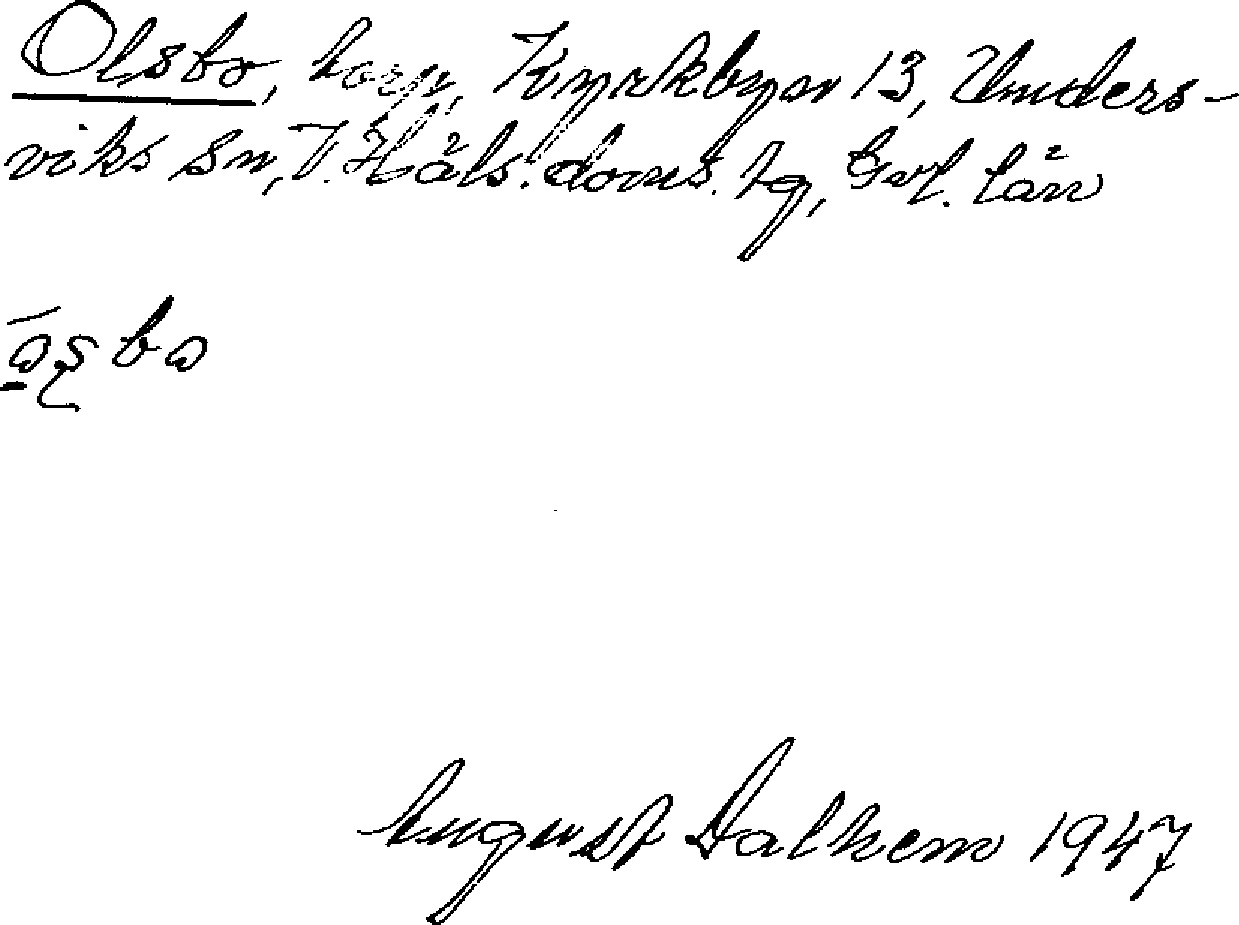 Olsbo, torp, Kyrkbyn 13, Unders-
viks sn, V. Häls. doms. tg, Gvl. län
āşbo
August Dalhem 1947